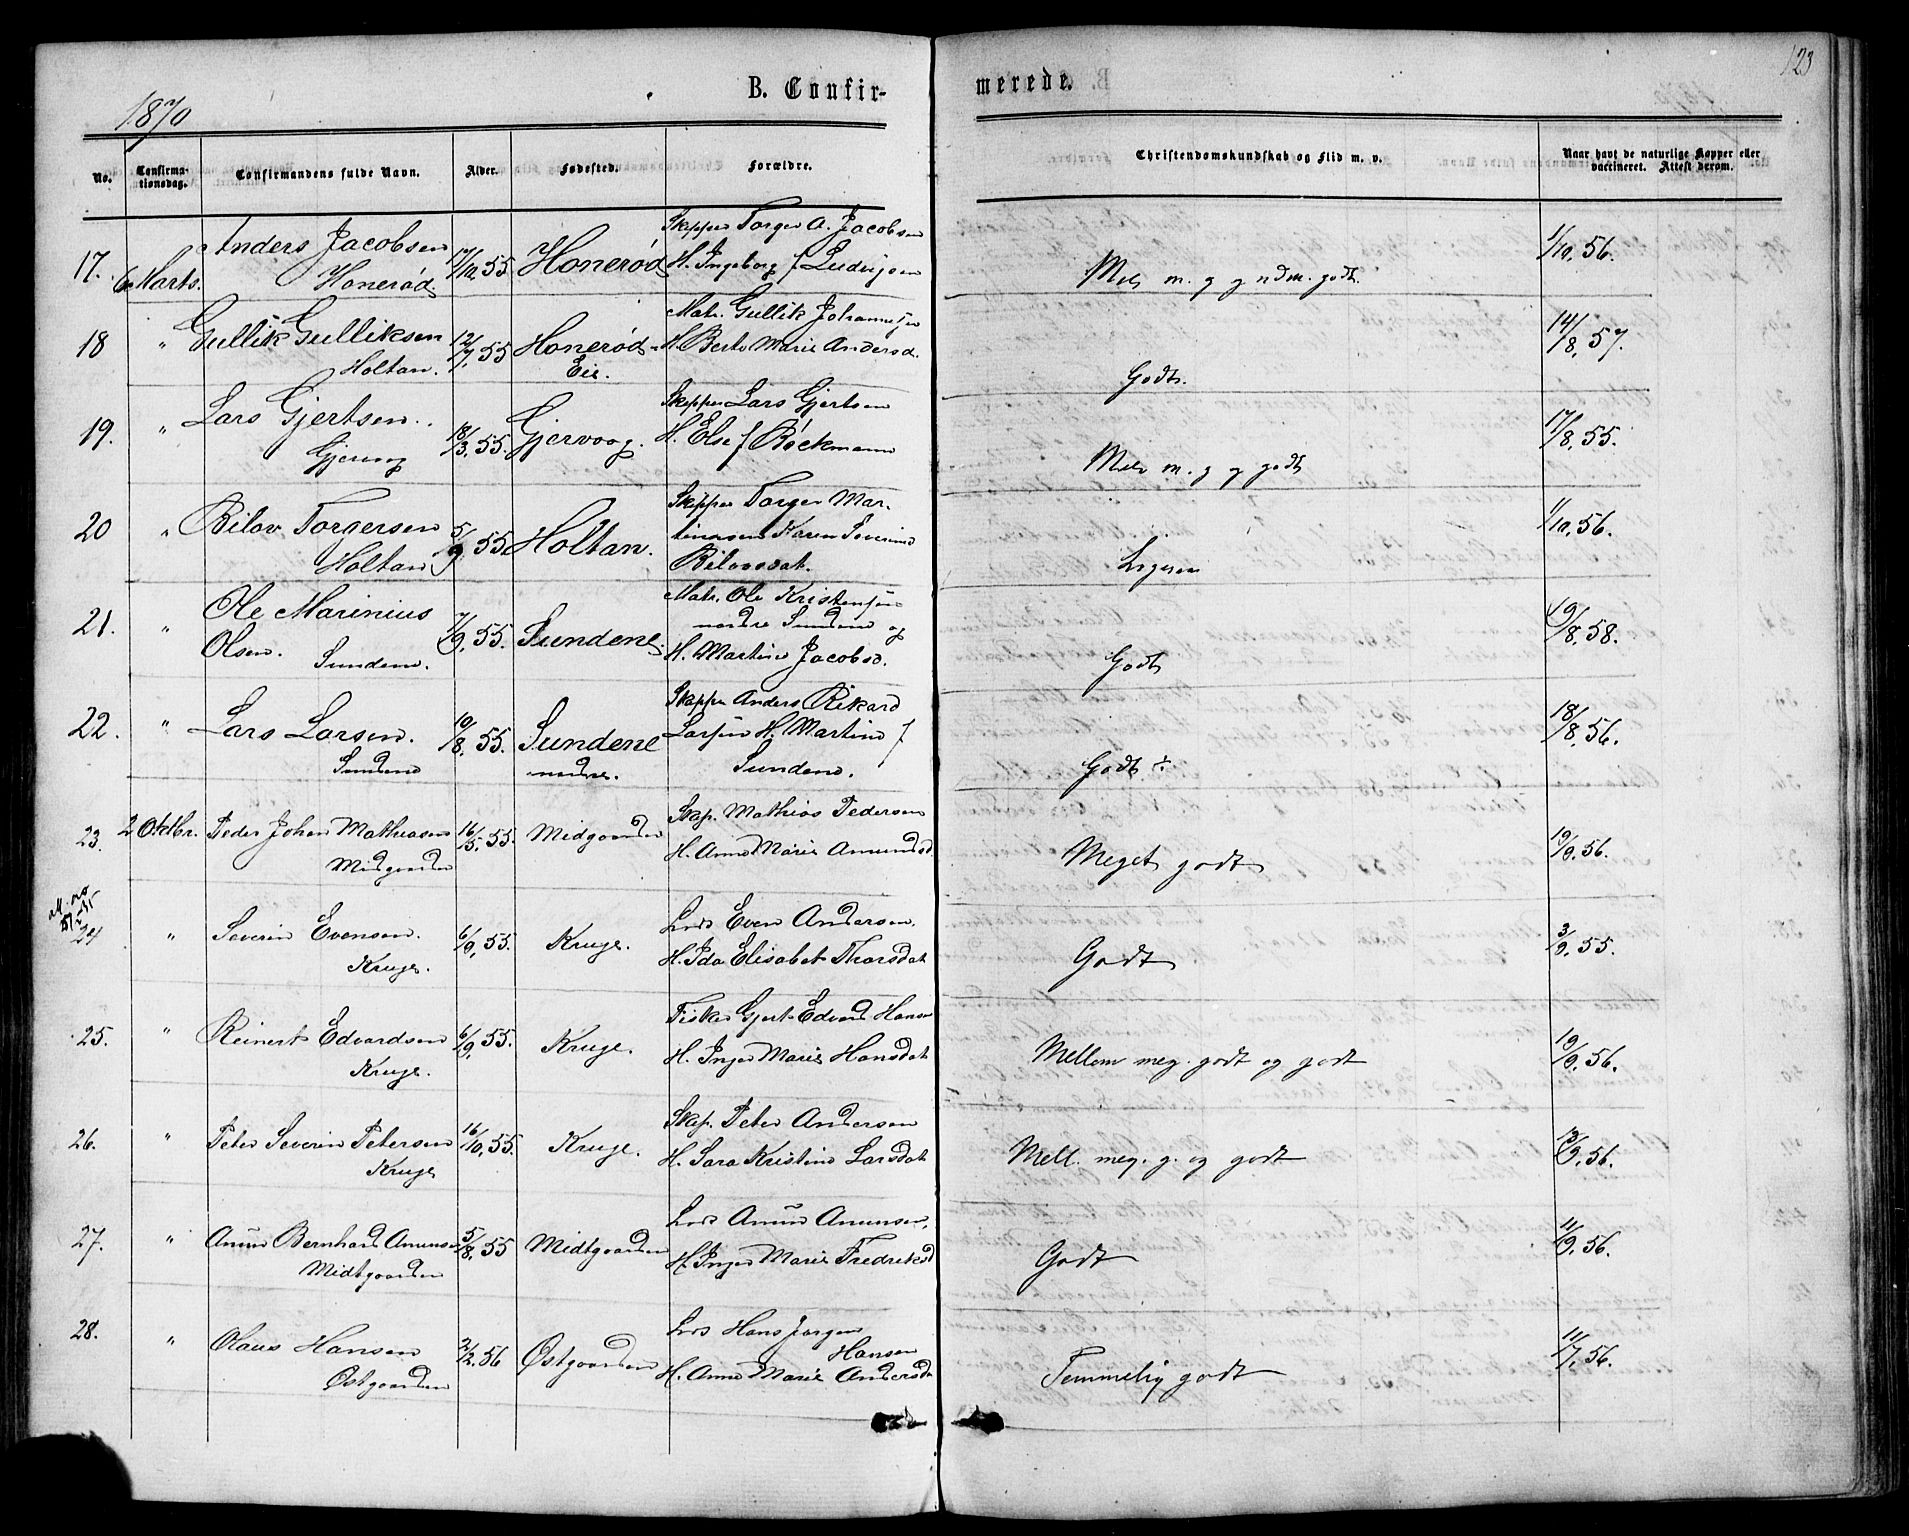 123
1870
B. Confir-
merede.
No.
Confirma-
tionsdag.
Confirmandens fulde Navn.
Alder.
Fødested.
Forældre.
Christendomskundskab og Flid m. v.
Naar havt de naturlige Kopper eller
vaccineret. Attest derom.
17. 6 Marts. Anders Jacobsen 17/10, 55. Honerød Skipper Torger A. Jacobsen 1/10, 56.
Honerød. H. Ingeborg f Ludvigsen
m. g g godt.
18 " Gullik Gulliksen 12/7, 55 Honerød- Matr. Gullik Johannesen 14/8, 57.
Holtan. Eie. H. Berte Marie Andersd.
Godt.
19. " Lars Gjertsen. 18/3, 55. Gjervoog. Skipper Lars Gjertsen 17/8, 55.
Gjervog H. Else f Bøckmann
m. g g godt
20 " Bilov Torgersen 5/9, 55 Holtan. Skipper Torger Mar- 1/10, 56.
Holtan tinussen Karen Severine
Bilovsdat. Ligesen
21. " Ole Marinius 7/9, 55. Sundene. Matr. Ole Kristensen 19/8, 58.
Olsen. Sundene. nordre Sundene og
H. Martine Jacobsd. Godt
22. " Lars Larsen. 10/8, 55. Sundene Skipper Anders Rikard 18/8, 56.
Sundene nordre. Larsen H. Martine f
Sundene. Godt ÷
23. 2 Oktbr. Peder Johan Mathiasen 16/5, 55. Midgaarden Skip. Mathias Pedersen 19/9, 56.
Midgaarden H. Anne Marie Amundsd.
Meget godt
24 " Severin Evensen. 6/9, 55. Kruge. Lods Even Andersen. 3/9, 55.
Kruge. H. Ida Elisabet Thorsdat
Godt
25. " Reinert Edvardsen 6/9, 55. Kruge. Fisker Gjert Edvard Hansen 19/9, 56.
Kruge. H. Inger Marie Hansdat
Mellem meg. godt og godt
26. " Peter Severin Petersen 16/10, 55. Kruge. Skip. Peter Andersen
Kruge H. Sara Kristine Larsdat
Mell. meg. g. og godt
27. " Amun Bernhard Amunsen 5/8, 55 Midtgaarden Lods Amun Amunsen, 11/9, 56.
Midtgaarden H. Inger Marie Fredriksd
Godt
28. " Olaus Hansen 2/2, 56 Østgaarden Lods Hans Jørgen 11/7, 56.
Hansen
Østgaarden H. Anne Marie Andersd
Temmelig godt